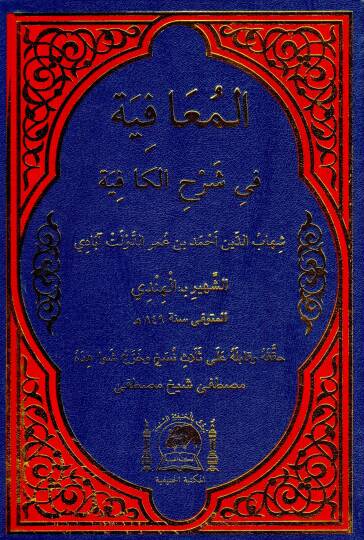 المُعَافِيَة
فِي شَرْحِ الكَافِيَة
شِهَابُ الدِّين أَحْمَد بن عُمَر الدَّوْلَت آبَادِي
الشَّهِير بـ الْهِنْدِي
المتوفى سنة ٨٤٩ هـ
حقَّقَهُ وقابلَهُ عَلَى ثَلَاثِ نُسَخٍ وخَرَّجَ شَوَاهِدَهُ
مصطفى شيخ مصطفى
المكتبة الحنيفية